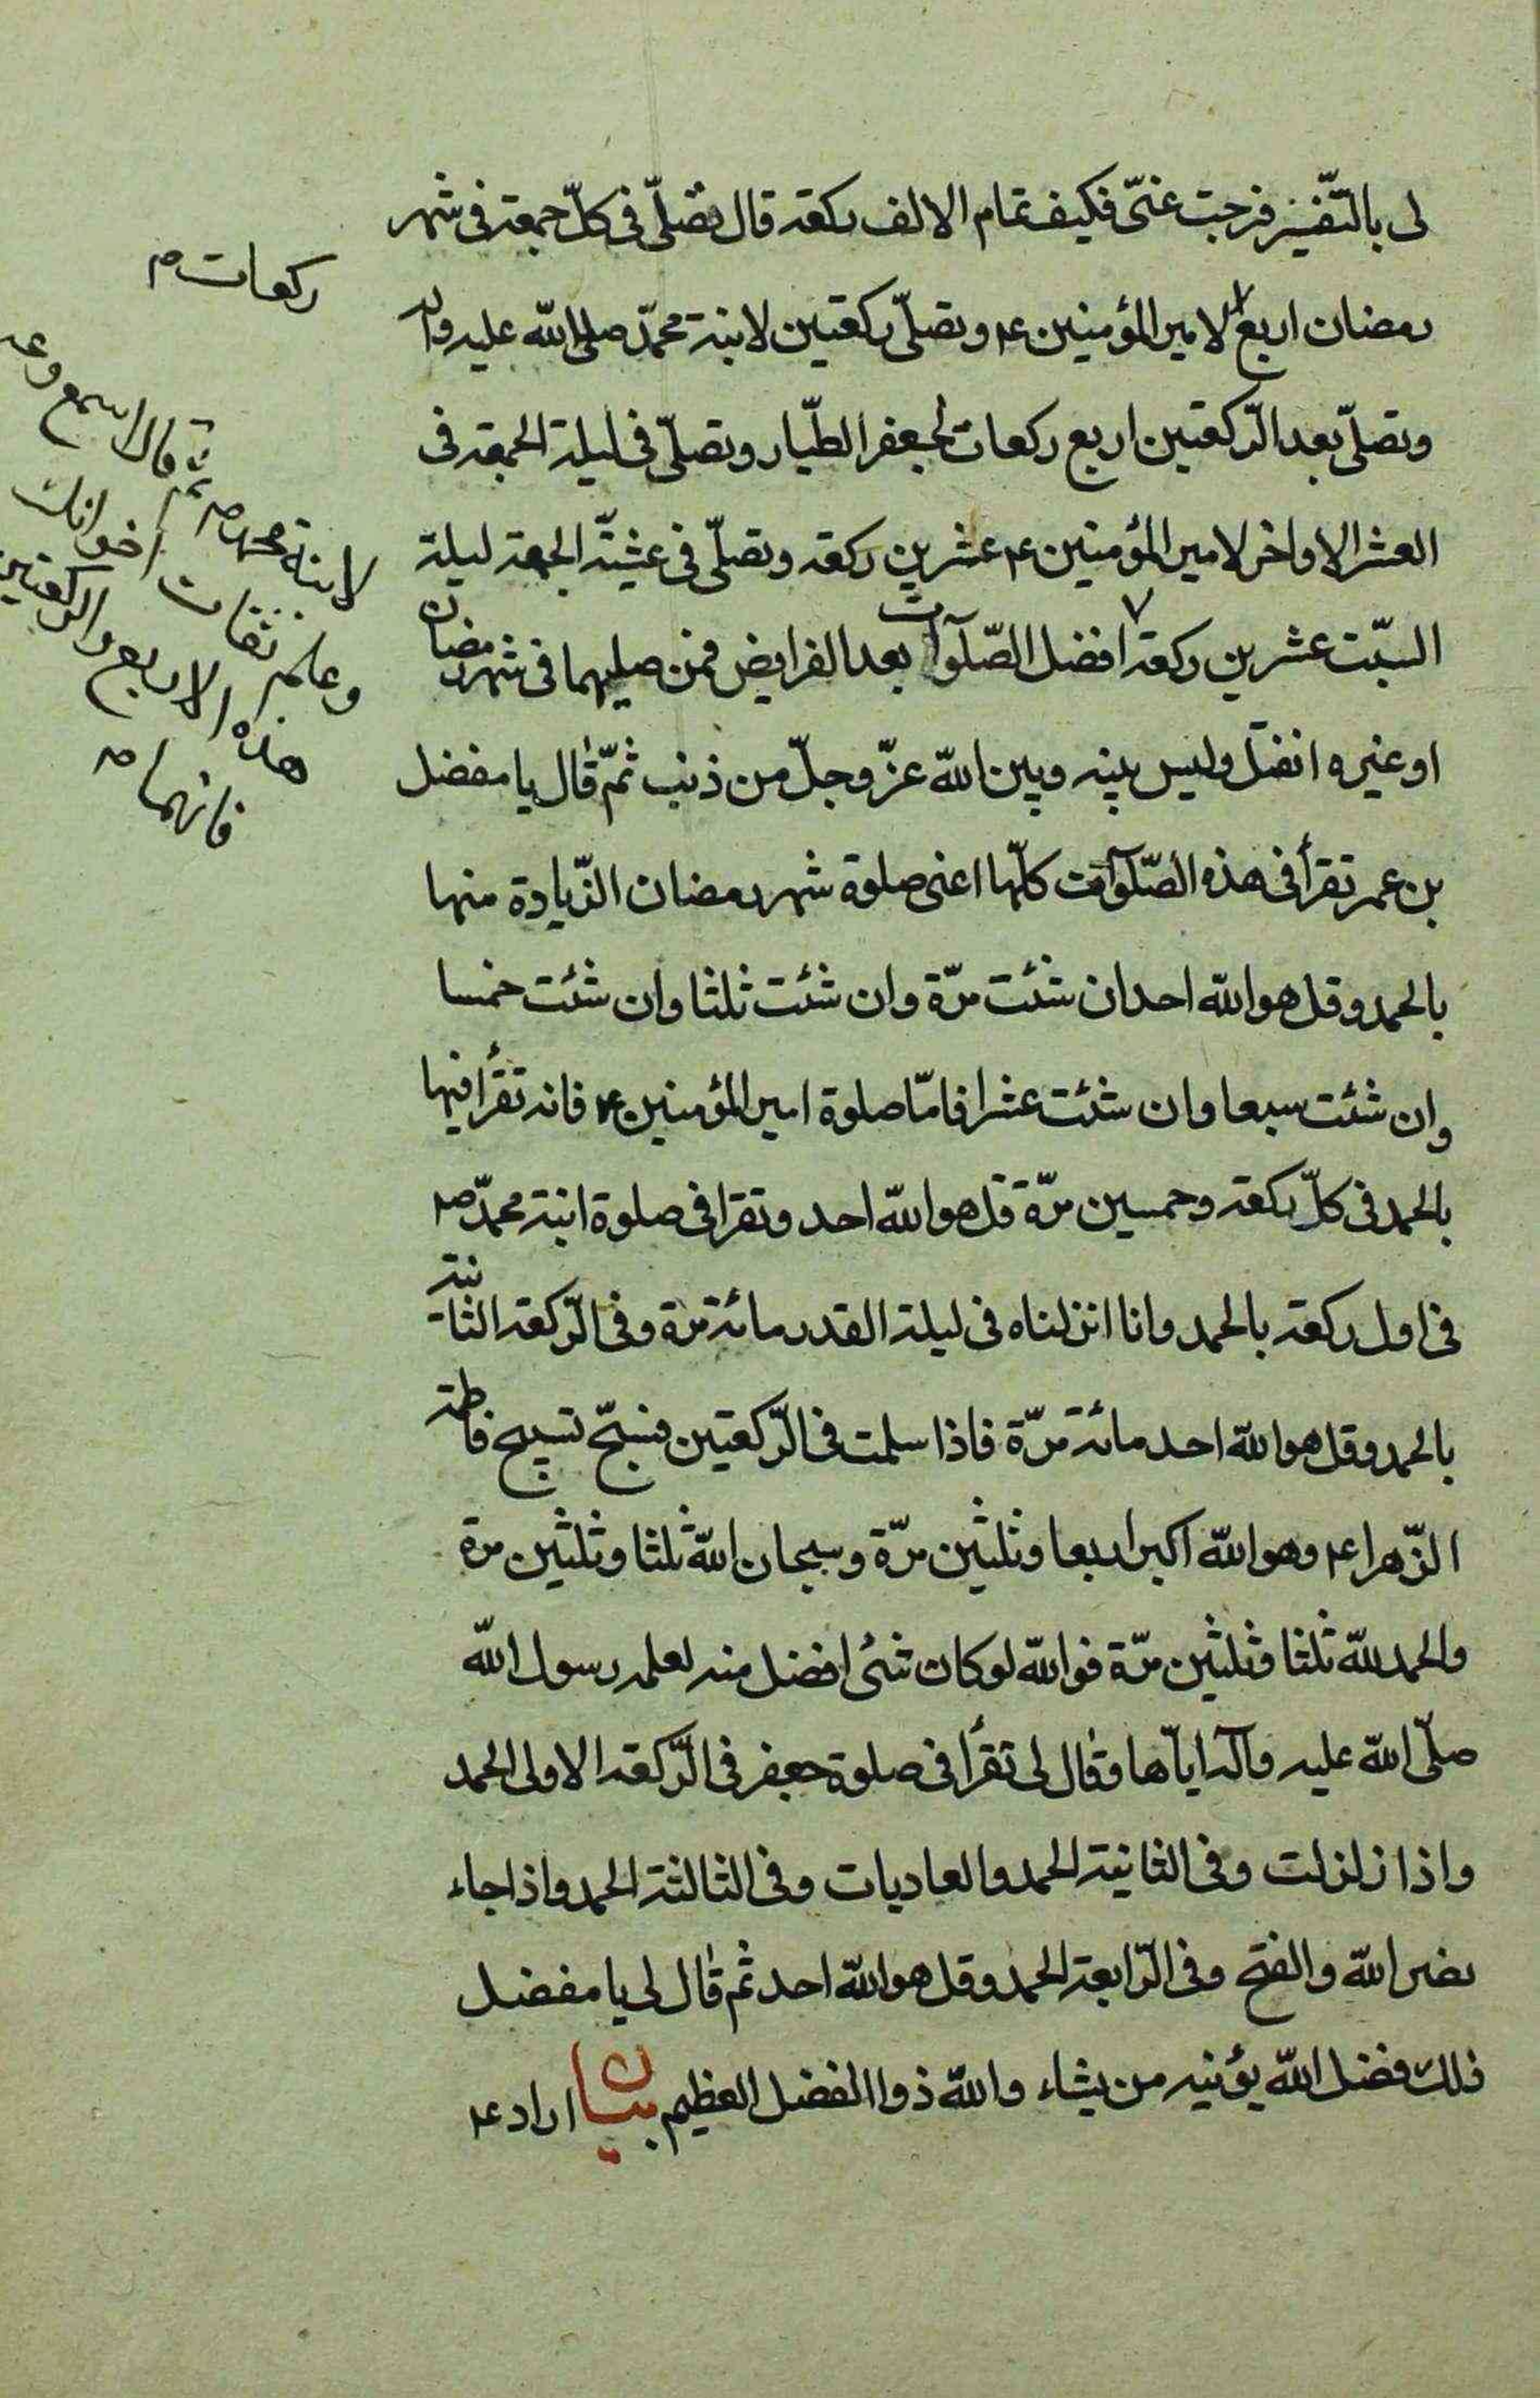 لى بالتّفسير فرجت عنّى فكيف تمام الالف ركعة قال تصلّى فى كلّ جمعة فى شهر
رمضان اربع لامير المؤمنين ع و تصلّى ركعتين لابنة محمّد صلى الله عليه واله
وتصلّى بعد الرّكعتين اربع ركعات لجعفر الطّيار و تصلّى فى ليلة الجمعة فى
العشر الاواخر لامير المؤمنين ع عشرين ركعة و تصلّى فى عشيّة الجمعة ليلة
السّبت عشرين ركعة افضل الصّلوات بعد الفرايض فمن صليهما فى شهر رمضان
او غيره انفتل وليس بينه وبين الله عزّ وجلّ من ذنب ثمّ قال يا مفضل
بن عمر تقرأ فى هذه الصّلوات كلّها اعنى صلوة شهر رمضان الزّيادة منها
بالحمد و قل هو الله احد ان شئت مرّة وان شئت ثلثا وان شئت خمسا
وان شئت سبعا وان شئت عشرا فامّا صلوة امير المؤمنين ع فانه تقرأ فيها
بالحمد فى كلّ ركعة وخمسين مرّة قل هو الله احد وتقرا فى صلوة ابنة محمدّ ص
فى اول ركعة بالحمد وانا انزلناه فى ليلة القدر مائة مرة وفى الرّكعة الثانية
بالحمد و قل هو الله احد مائة مرّة فاذا سلمت فى الرّكعتين فسبّح تسبيح فاطمة
الزّهرا ع وهو الله اكبر اربعا وثلثين مرّة و سبحان الله ثلثا وثلثين مرة
والحمد لله ثلثا وثلثين مرّة فوالله لو كان شئ افضل منه لعلمه رسول الله
صلّى الله عليه وآله ايّاها وقال لى تقرأ فى صلوة جعفر فى الرّكعة الاولى الحمد
واذا زلزلت وفى الثانية الحمد والعاديات وفى الثالثة الحمد واذا جاء
نصر الله والفتح وفى الرّابعة الحمد وقل هو الله احد ثم قال لى يا مفضل
ذلك فضل الله يؤتيه من يشاء والله ذوا الفضل العظيم بيان اراد ع
ركعات ص
لابنة محمد ص ثم قال اسمع وعه
وعلم ثقات اخوانك
هذه الاربع والركعتين
فانهما ص